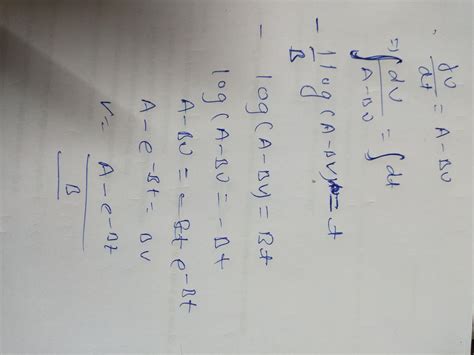 dv/dt = A - BV
=) ∫ dV/A-BV = ∫ dt
- 1/B log(A-BV) = t
- log(A-BV) = Bt
log(A-BV) = -Bt
A-BV = e^-Bt
A - e^-Bt = BV
V = A - e^-Bt/B